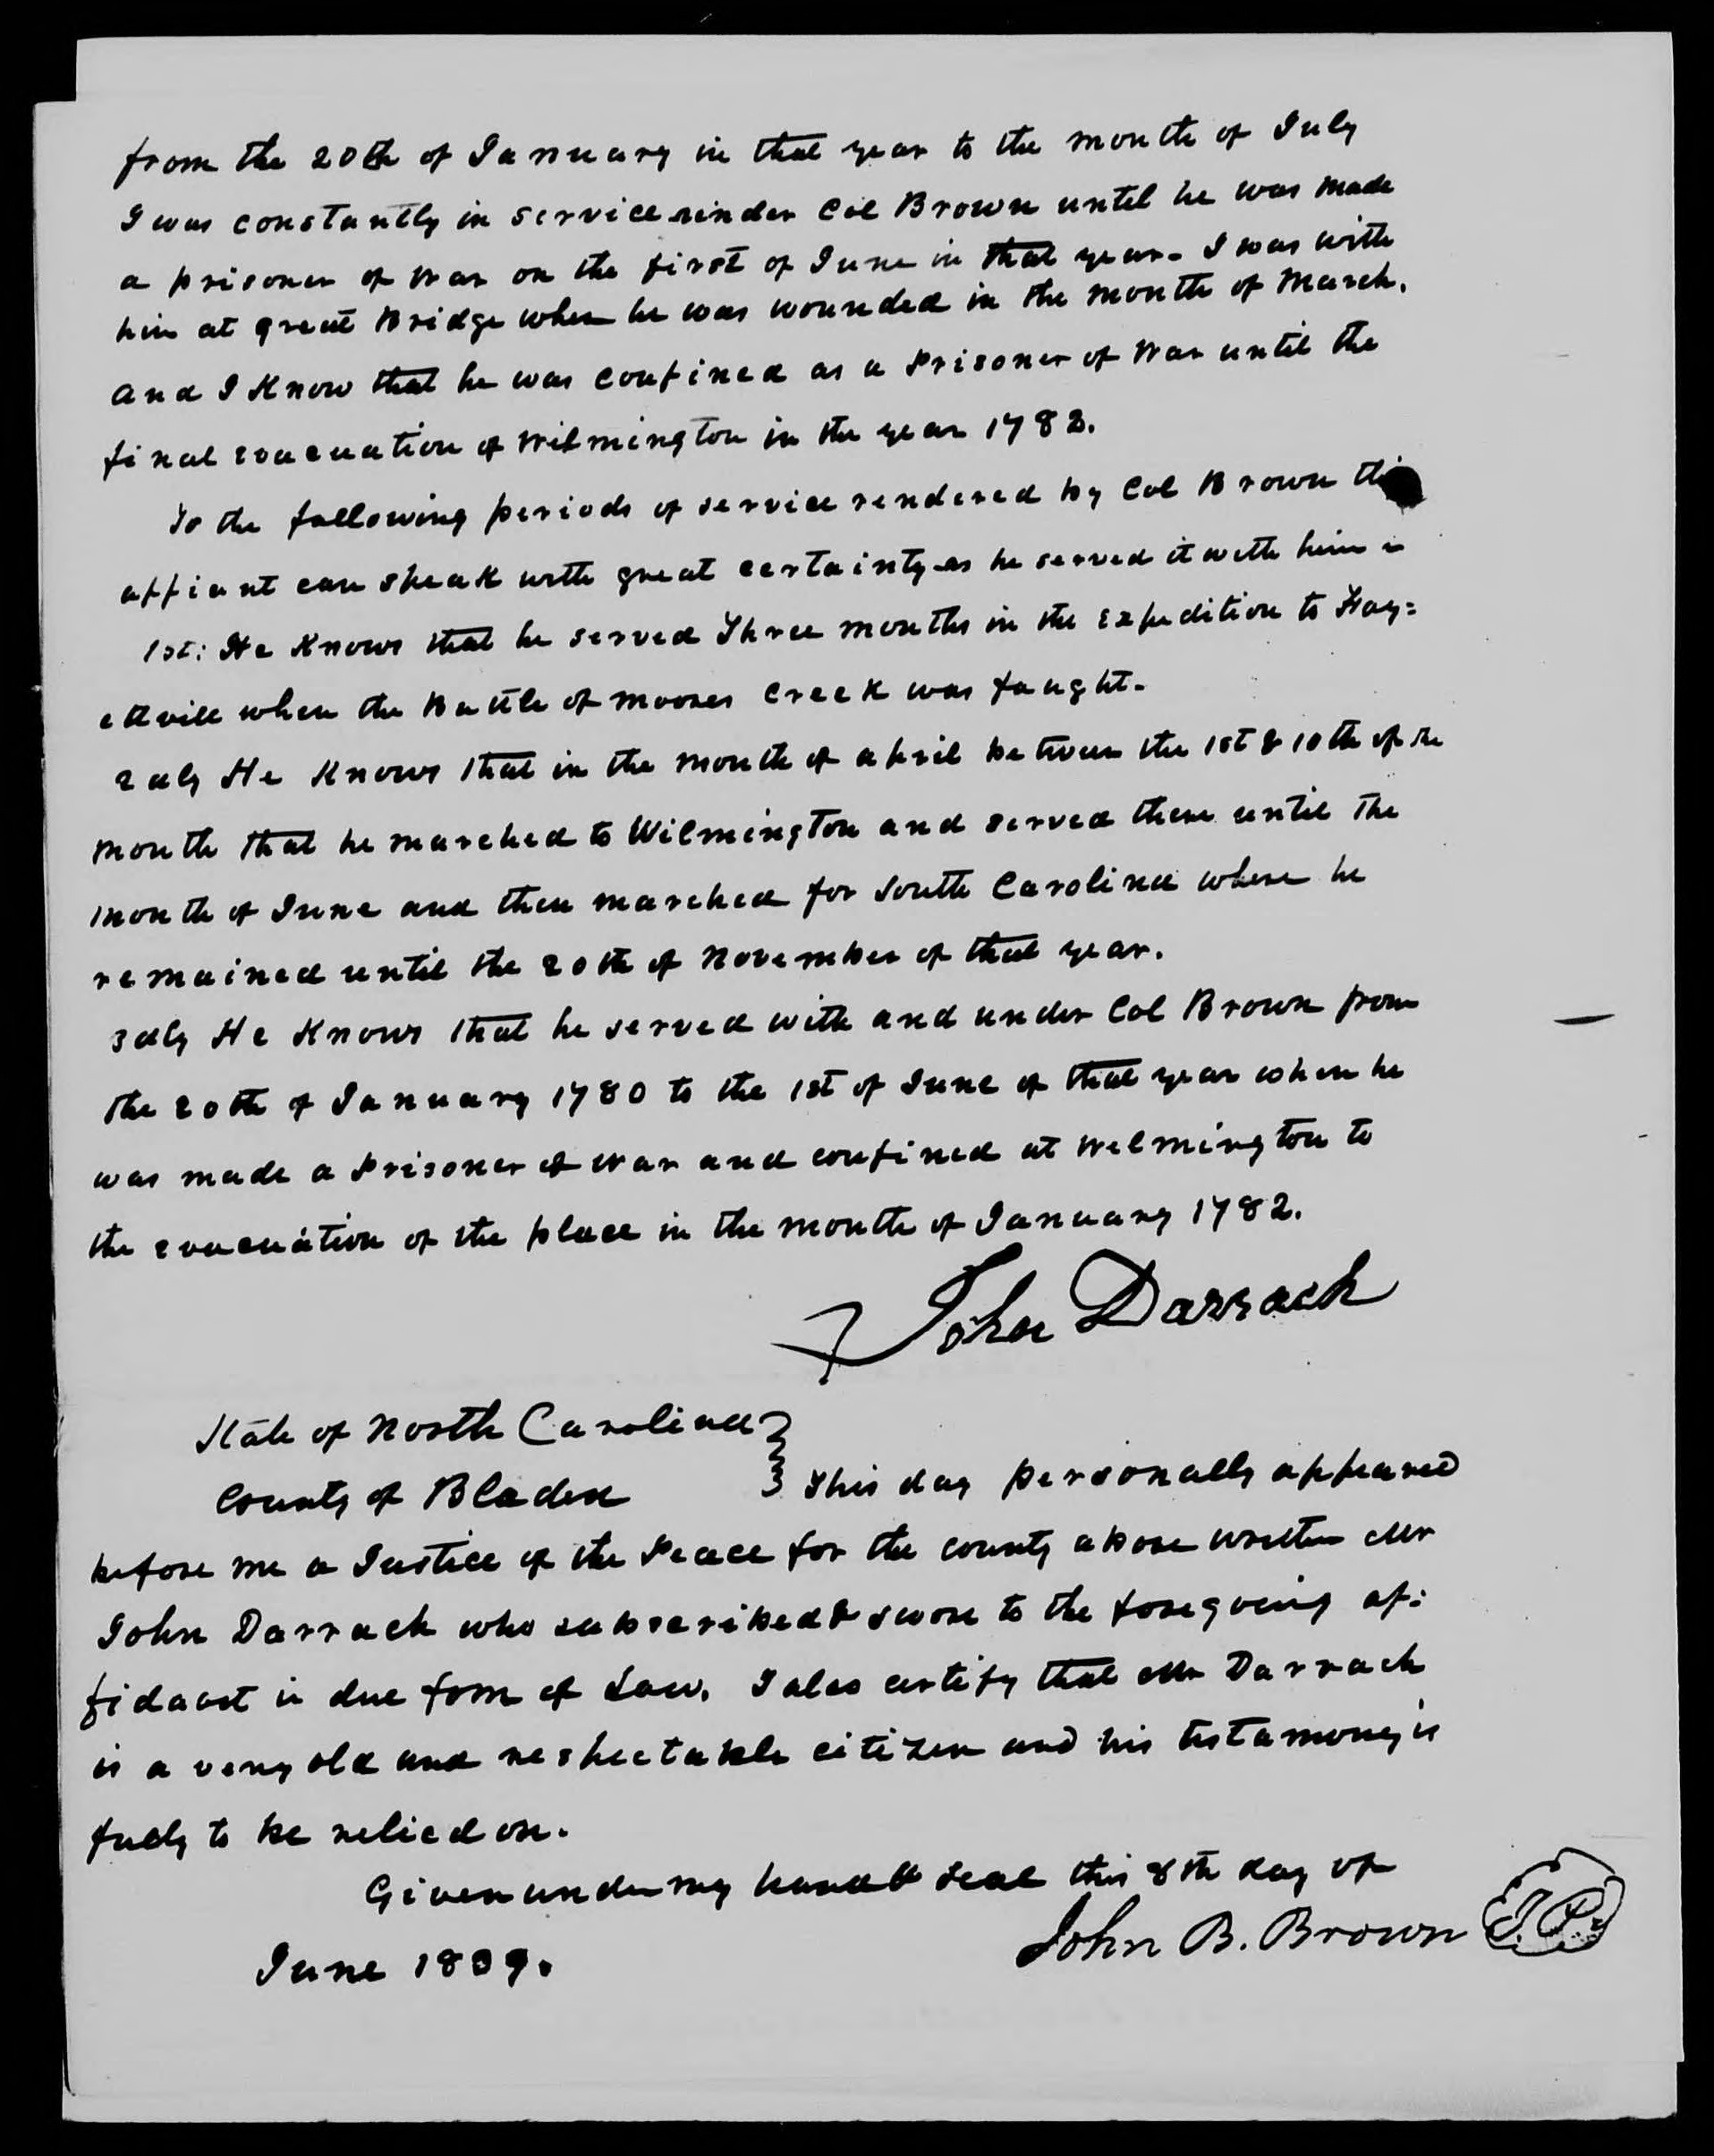 from the 20th of January in that year to the month of July
I was constantly in service under Col Brown until he was made
a prisoner of War on the first of June in that year. I was with
him at great Bridge when he was wounded in the month of March.
and I Know that he was confined as a Prisoner of War until the
final evacuation of Wilmington in the year 1782.
To the following periods of service rendered by Col Brown this
affiant can speak with great certainty as he served it with him
1st: He Knows that he served Three months in the Expedition to Fay=
etteville when the Battle of moores Creek was faught.
2dly He Knows that in the month of april between the 1st & 10th of the
month that he marched to Wilmington and served there until the
month of June and then marched for South Carolina where he
remained until the 20th of November of that year.
3dly He Knows that he served with and under Col Brown from
the 20th of January 1780 to the 1st of June of that year when he
was made a Prisoner of War and confined at Welmington to
the evacuation of the place in the month of January 1782.
John Darrach
State of North Carolina
County of Bladen } This day personally appeared
before me a Justice of the Peace for the county above written Mr
John Darrach who subscribed & swore to the foregoing af=
fidavit in due form of Law. I also certify that Mr Darrach
is a very old and respectable citizen and his testamony is
fully to be relied on.
Given under my hand & Seal this 8th day of
June 1839.
John B. Brown J.P.